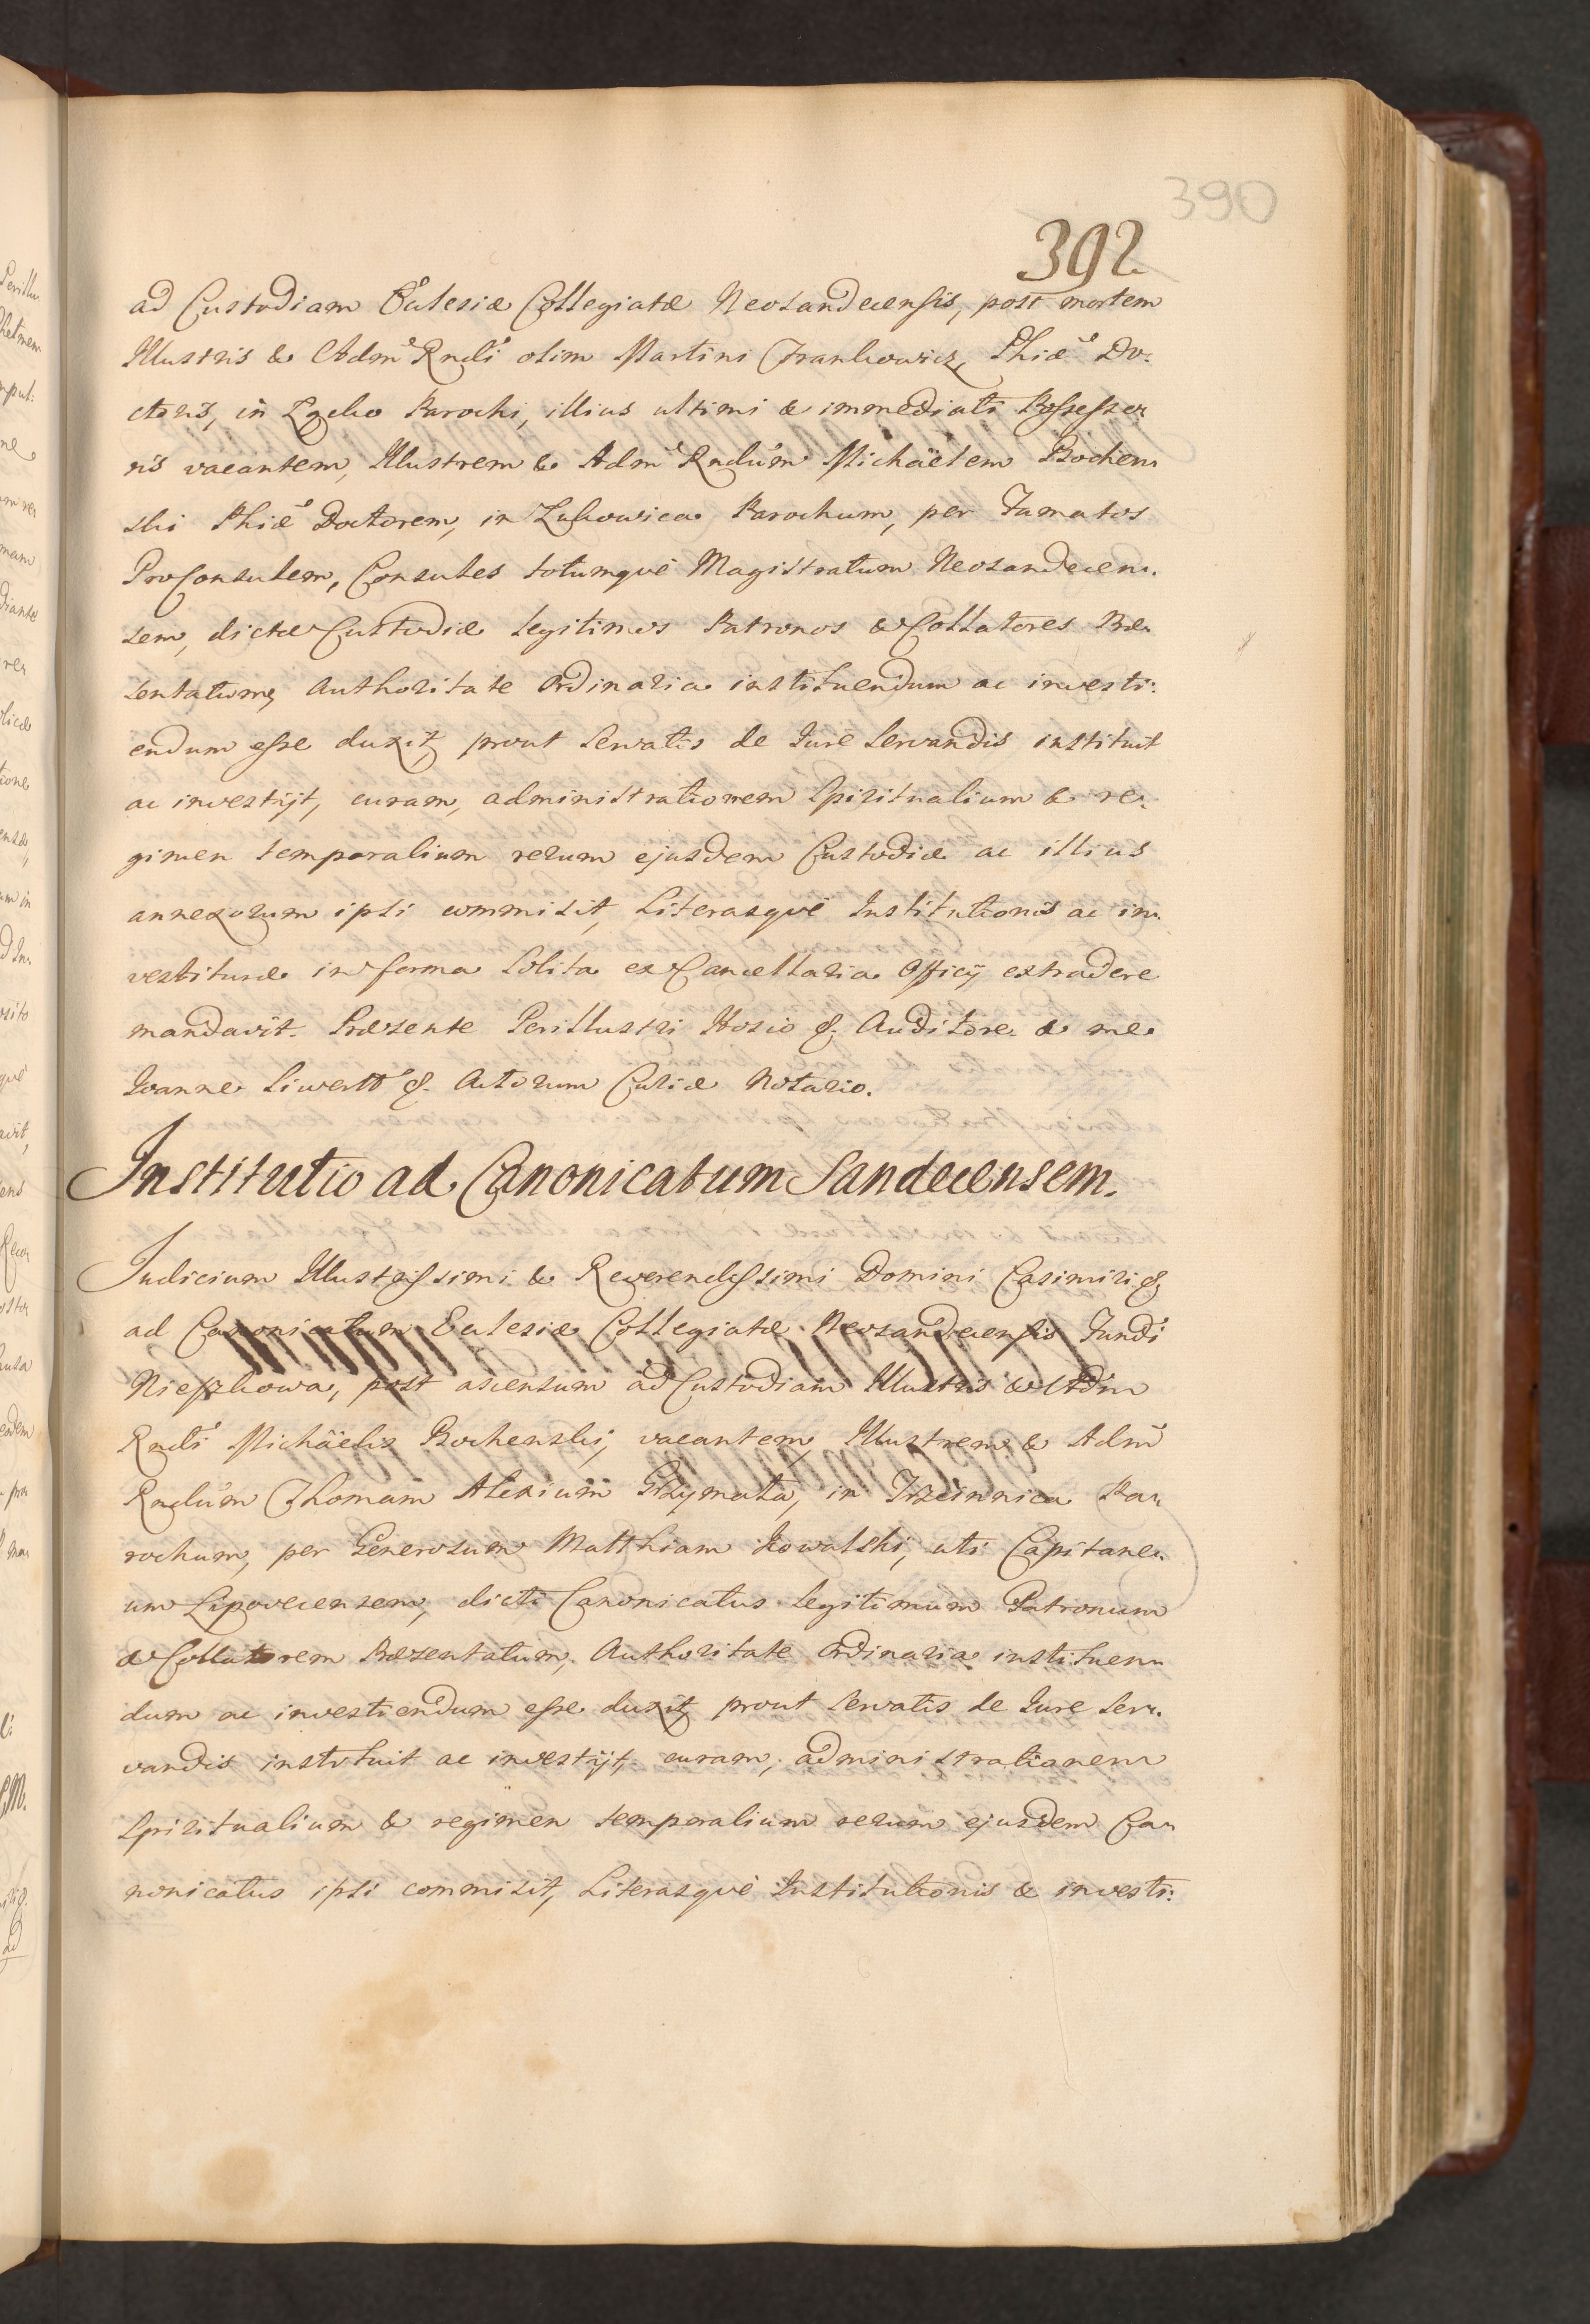 390
392
ad Custodiam Ecclesiæ Collegiatæ Neosandecensis, post mortem
Illustris & Adm Rndi olim Martini Frankowicz, Phiæ Do:
ctoris, in Parochi, illius ultimi & immediati Possesso:
ris vacantem, Illustrem & Adm Rndum Michäelem Bochen:
ski Phiæ Doctorem, in Łukowica Parochum, per Famatos
ProConsulem, Consules totumque Magistratum Neosandecen:
sem, dictæ Custodiæ legitimos Patronos & Collatores Præ:
sentatum, Authoritate Ordinaria instituendum ac investi:
endum esse duxit, prout servatis de Jure servandis instituit
ac investijt, curam, administrationem Spiritualium & re:
gimen temporalium rerum ejusdem Custodiæ ac illius
annexorum ipsi commisit, Literasque Institutionis ac in:
vestituræ in forma solita ex Cancellaria Officij extradere
mandavit. Præsente Perillustri Hosio &. Auditore & me
Joanne Liwertt &. Actorum Curiæ Notario.
Institutio ad Canonicatum Sandecensem.
Judicium Illustrissimi & Reverendissimi Domini Casimiri &
ad Canonicatum Eclesiæ Collegiatæ Neosandecensis Fundi
Nieszkowa, post ascensum ad Custodiam Illustris & Adm
Rndi Michäelis Bochenski, vacantem, Illustrem & Adm
Rndum Thomam Alexium Grzymała, in Trzcinnica Pa:
rochum, per Generosum Matthiam Kowalski, uti Capitane:
um Lipovecensem, dicti Canonicatus legitimum Patronum
& Collatorem Præsentatum, Authoritate Ordinaria instituen:
dum ac investiendum esse duxit, prout servatis de Jure ser:
vandis instituit ac investijt, curam, administrationem
Spiritualium & regimen temporalium rerum ejusdem Ca:
nonicatus ipsi commisit, Literasque Institutionis & investi: